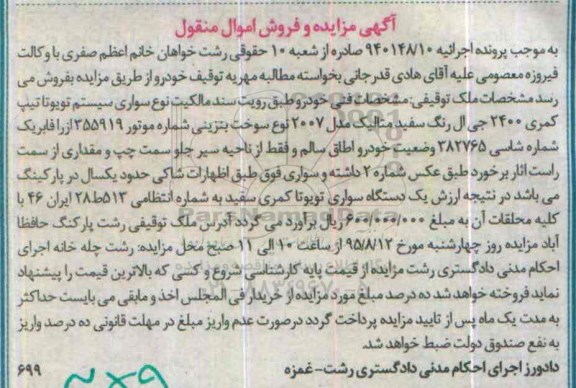 آگهی مزایده و فروش اموال منقول
به موجب پرونده اجرائیه ۹۴۰۱۴۸/۱۰ صادره از شعبه ۱۰ حقوقی رشت خواهان خانم اعظم صفری با وکالت
فیروزه معصومی علیه آقای هادی قدرجانی بخواسته مطالبه مهریه توقیف خودرو از طریق مزایده بفروش می
رسد مشخصات ملک توقیفی: مشخصات فنی خودرو طبق رویت سند مالکیت نوع سواری سیستم تویوتا تیپ
کمری ۲۴۰۰ جی ال رنگ سفید متالیک مدل ۲۰۰۷ نوع سوخت بنزینی شماره موتور ۳۵۵۹۱۹ ازرا فابریک
شماره شاسی ۳۸۲۷۶۵ وضعیت خودرو اطاق سالم و فقط از ناحیه سپر جلو سمت چپ و مقداری از سمت
راست اثار برخورد طبق عکس شماره ۲ داشته و سواری فوق طبق اظهارات شاکی حدود یکسال در پارکینگ
می باشد در نتیجه ارزش یک دستگاه سواری تویوتا کمری سفید به شماره انتظامی ۵۱۳ط۲۸ ایران ۴۶ با
کلیه محلقات آن به مبلغ ۶۰۰/۰۰۰/۰۰۰ ریال براورد می گردد آدرس ملک توقیفی رشت پارکنگ حافظا
آباد مزایده روز چهارشنبه مورخ ۹۵/۸/۱۲ از ساعت ۱۰ الی ۱۱ صبح محل مزایده: رشت چله خانه اجرای
احکام مدنی دادگستری رشت مزایده از قیمت پایه کارشناسی شروع و کسی که بالاترین قیمت را پیشنهاد
نماید فروخته خواهد شد ده درصد مبلغ مورد مزایده از خریدار فی المجلس اخذ و مابقی می بایست حداکثر
به مدت یک ماه پس از تایید مزایده پرداخت گردد درصورت عدم واریز مبلغ در مهلت قانونی ده درصد واریز
به نفع صندوق دولت ضبط خواهد شد.
دادورز اجرای احکام مدنی دادگستری رشت-غمزه
۶۹۹
ParsNamadData